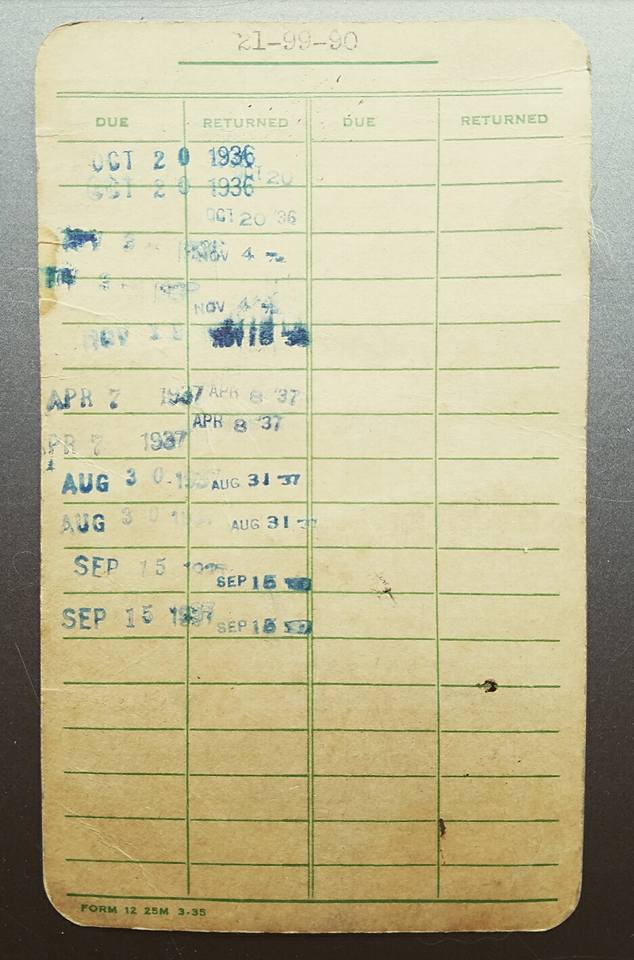 21-99-90
DUE RETURNED DUE RETURNED
OCT 20 1936 OCT 20
OCT 20 1936
OCT 20 '36
NOV 3 NOV 4
3 NOV 4
NOV NOV 18
APR 7 1937 APR 8 '37
PR 7 1937 APR 8 '37
AUG 30 1937 AUG 31 '37
AUG 30 AUG 31
SEP 15 SEP 15
SEP 15 1937 SEP 15
FORM 12 25M 3-35